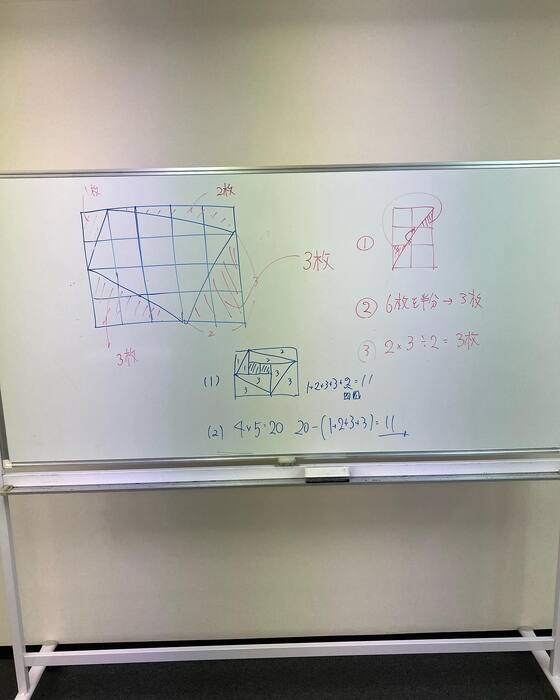 1枚
2枚
3枚
3
2
3枚
①
② 6枚を半分 → 3枚
③ 2×3÷2= 3枚
(1)
1 2
1 2
3 3
3 3
1+2+3+3+2=11
(2) 4×5=20 20-(1+2+3+3)=11